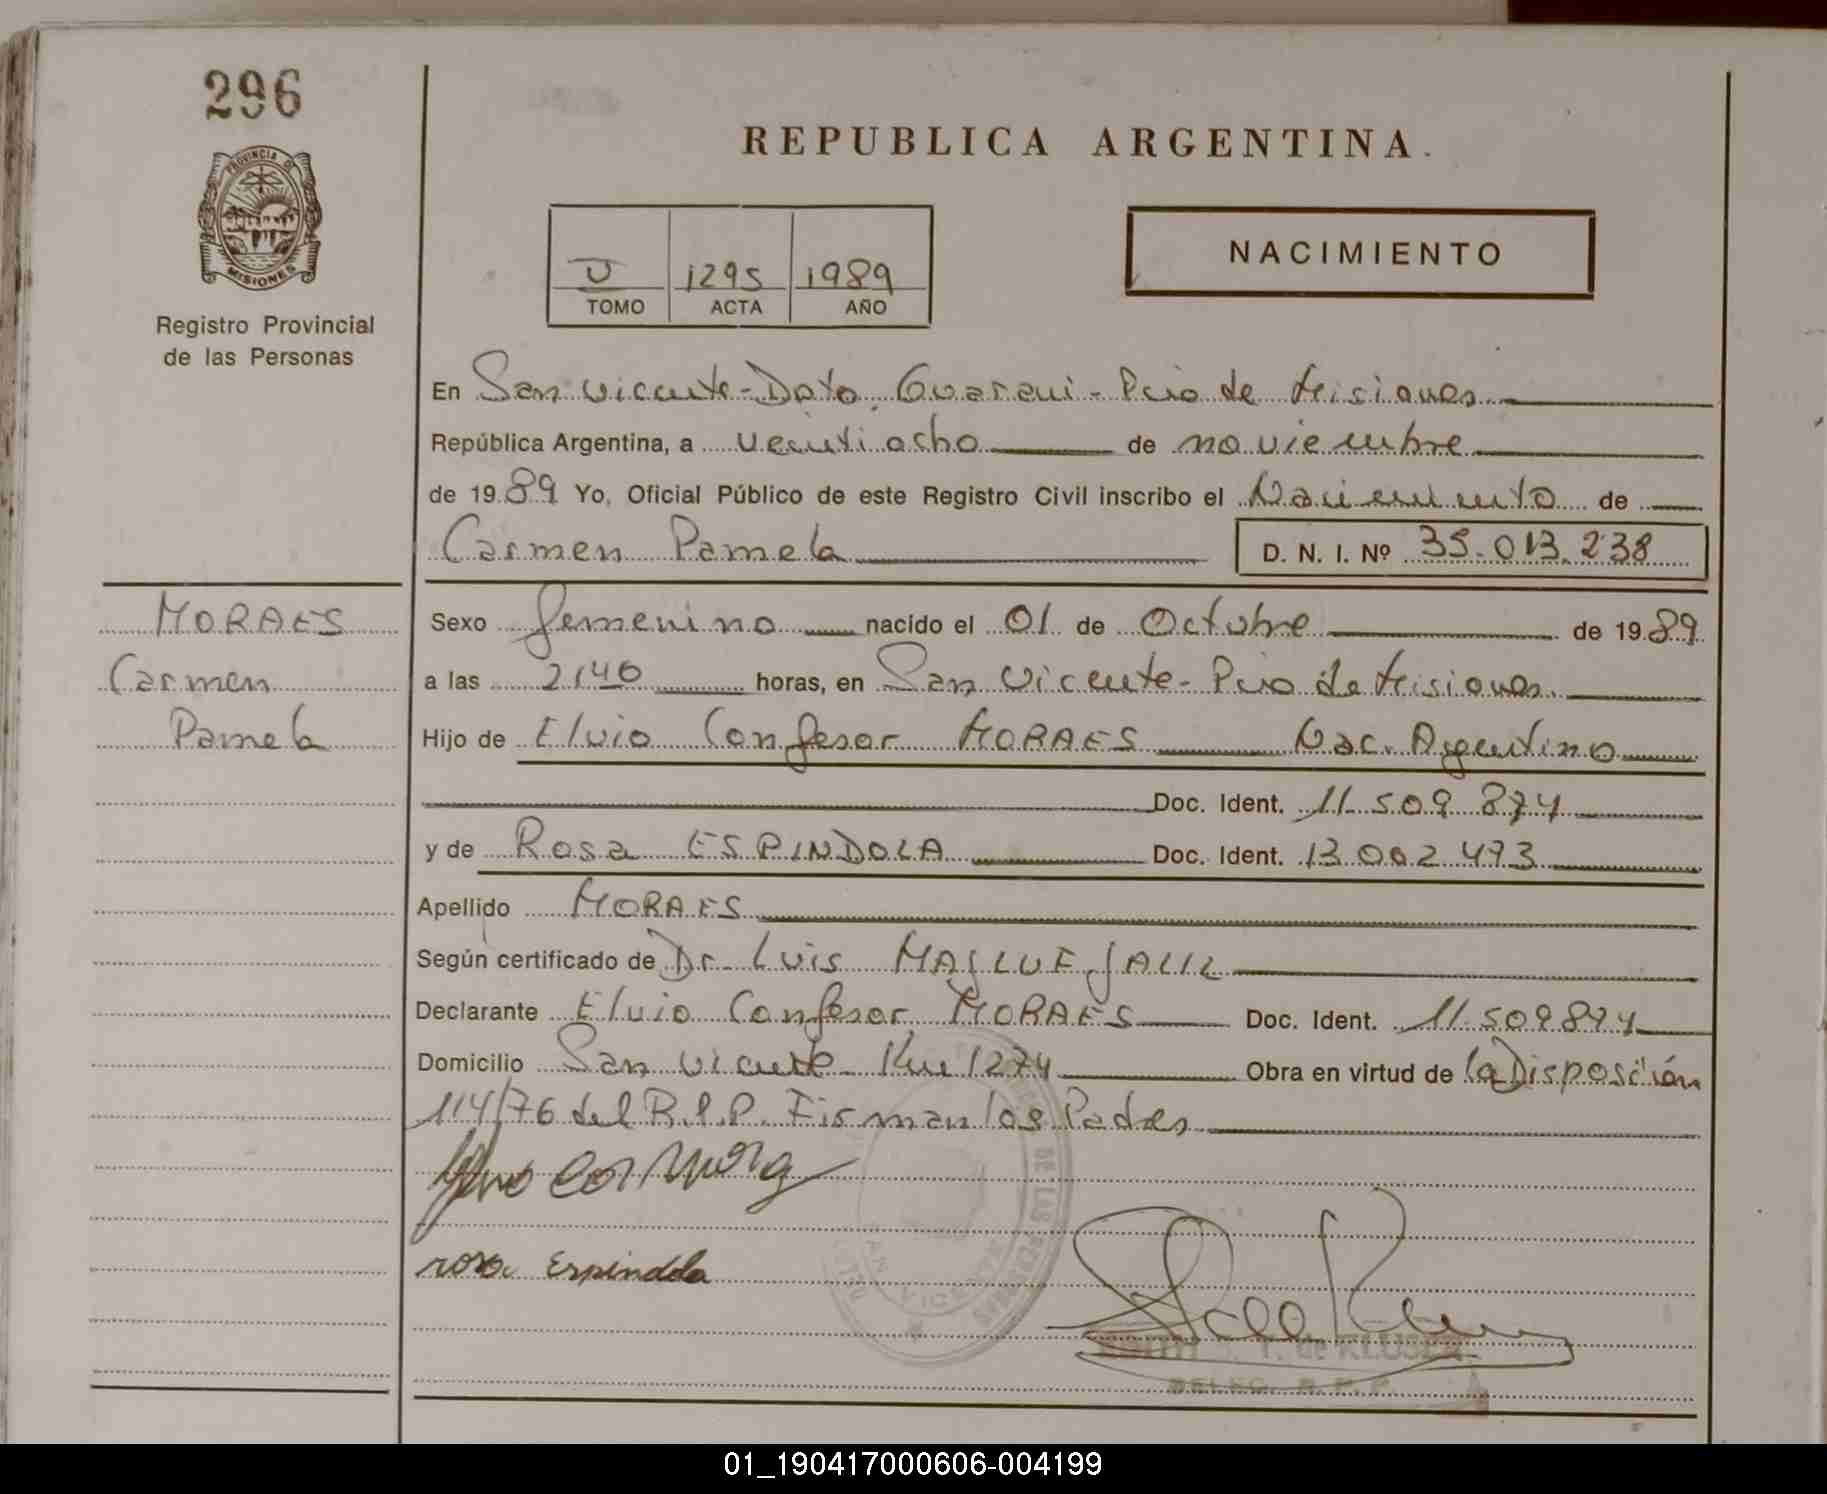 296
PROVINCIA D
MISIONES
Registro Provincial
de las Personas
REPUBLICA ARGENTINA.
NACIMIENTO
U 1295 1989
TOMO ACTA AÑO
En San Vicente-Dpto. Guarani-Pcia de Misiones
República Argentina, a veintiocho de noviembre
de 1989 Yo, Oficial Público de este Registro Civil inscribo el Nacimiento de
Carmen Pamela D. N. I. Nº 35.013.238
MORAES
Carmen
Pamela
Sexo femenino nacido el 01 de Octubre de 1989
a las 2140 horas, en San Vicente-Pcia de Misiones.
Hijo de Elvio Confesor MORAES Nac. Argentino
Doc. Ident. 11.509.874
y de Rosa ESPINDOLA Doc. Ident. 13.002.473
Apellido MORAES
Según certificado de Dr. Luis JALIL
Declarante Elvio Confesor MORAES Doc. Ident. 11.509874
Domicilio San Vicente Km 1274 Obra en virtud de la Disposición
114/76 del R.P.P. Firman los Padres
rosa Espindola
DE LAS PERSONAS
SAN VICENTE
de KLUSER
DELEG. R.P.P.
01_190417000606-004199